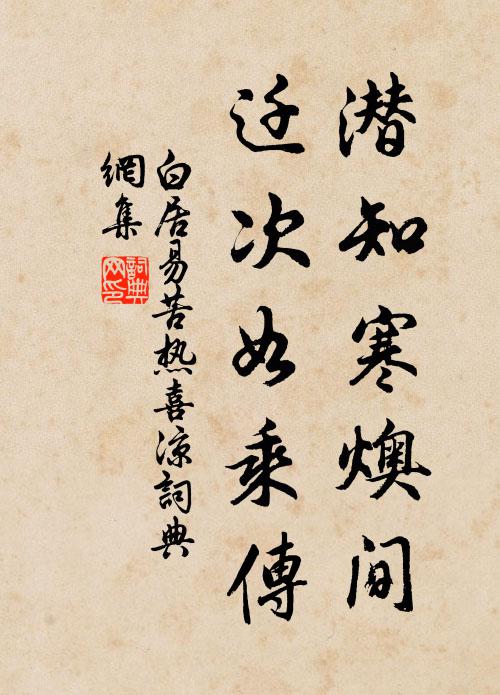 潜知寒燠间
迁次如乘傳
白居易苦热喜凉詞典
網集
詞典網印